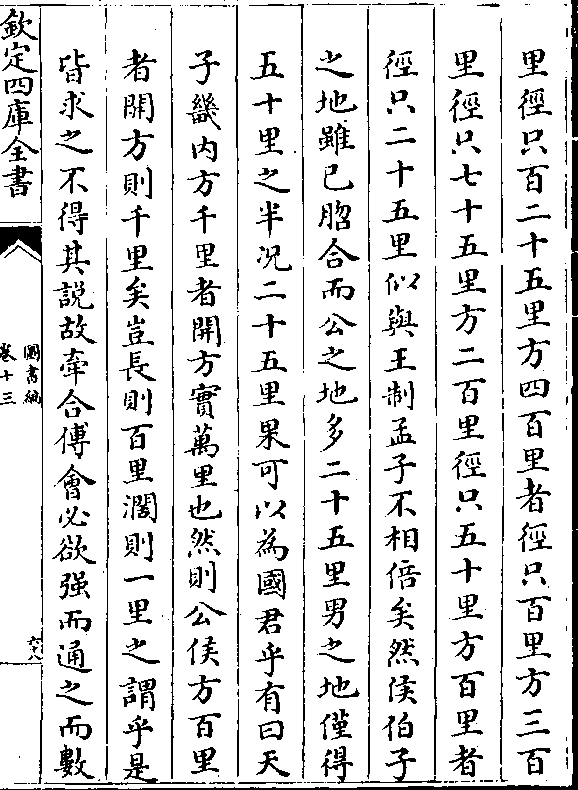 里徑只百二十五里方四百里者徑只百里方三百
里徑只七十五里方二百里徑只五十里方百里者
徑只二十五里似與王制孟子不相倍矣然侯伯子
之地雖已脗合而公之地多二十五里男之地僅得
五十里之半況二十五里果可以為國君乎有曰天
子畿内方千里者開方實萬里也然則公侯方百里
者開方則千里矣豈長則百里濶則一里之謂乎是
皆求之不得其說故牽合傅會必欲强而通之而數
欽定四庫全書
圖書編
卷十三
六十八